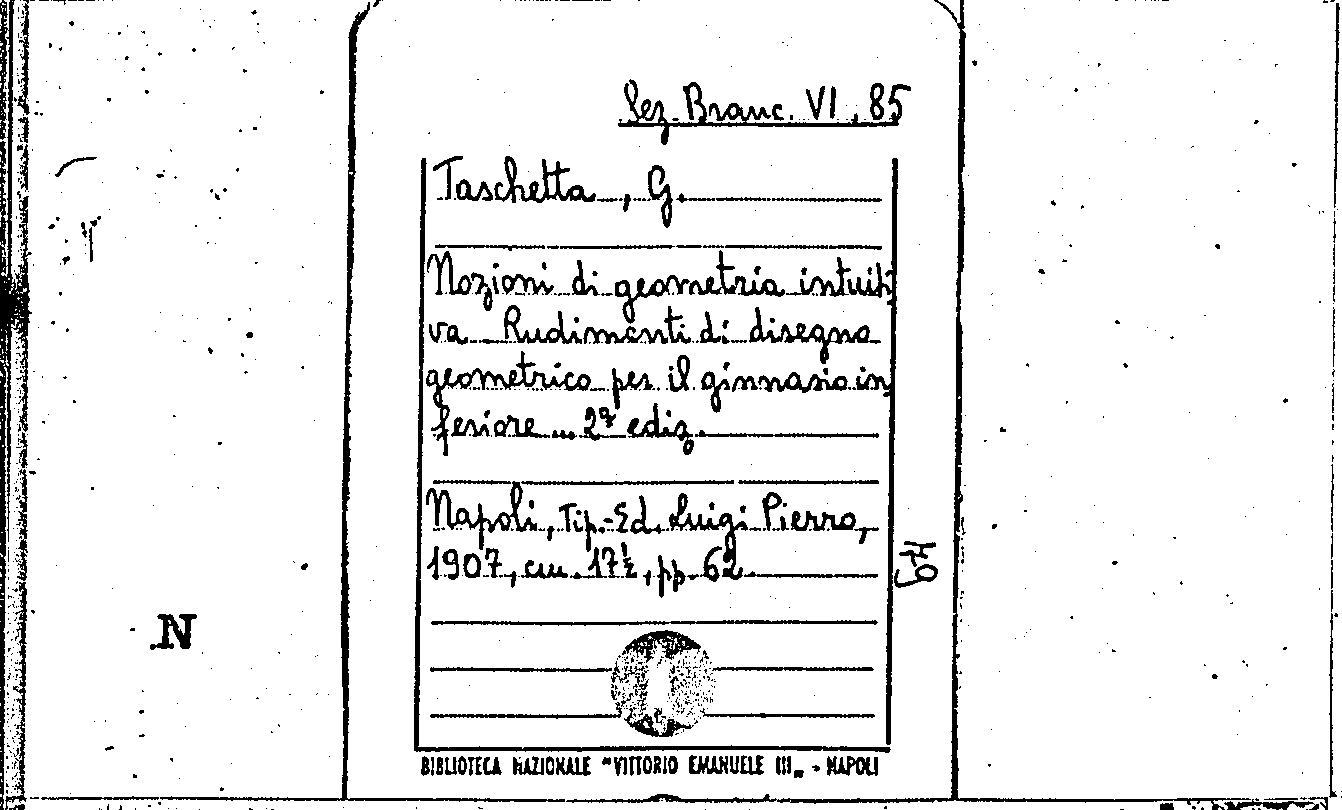 Sez. Branc. VI, 85
Taschetta, G.
Nozioni di geometria intuiti
va. Rudimenti di disegno
geometrico per il ginnasio in
feriore ... 2ª ediz.
Napoli, Tip.-Ed. Luigi Pierro,
1907, cm. 17½, pp. 62.
479
N
BIBLIOTECA NAZIONALE "VITTORIO EMANUELE III„ - NAPOLI